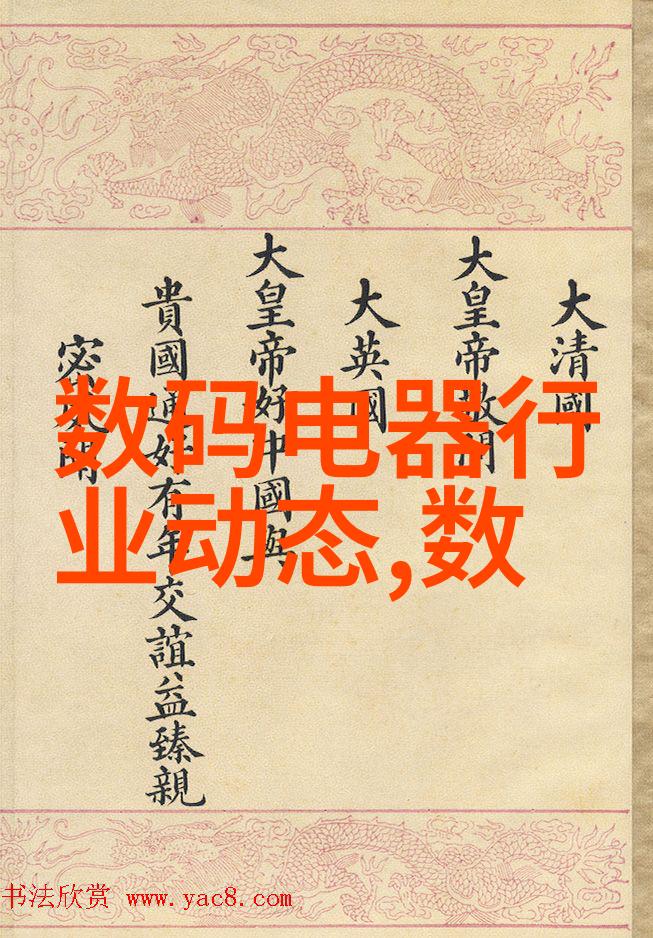 大清國
大皇帝敬問
大英國
大皇帝好中國與
貴國通好有年交誼益臻親
密
数码电器行
业动态,数
书法欣赏 www.yac8.com